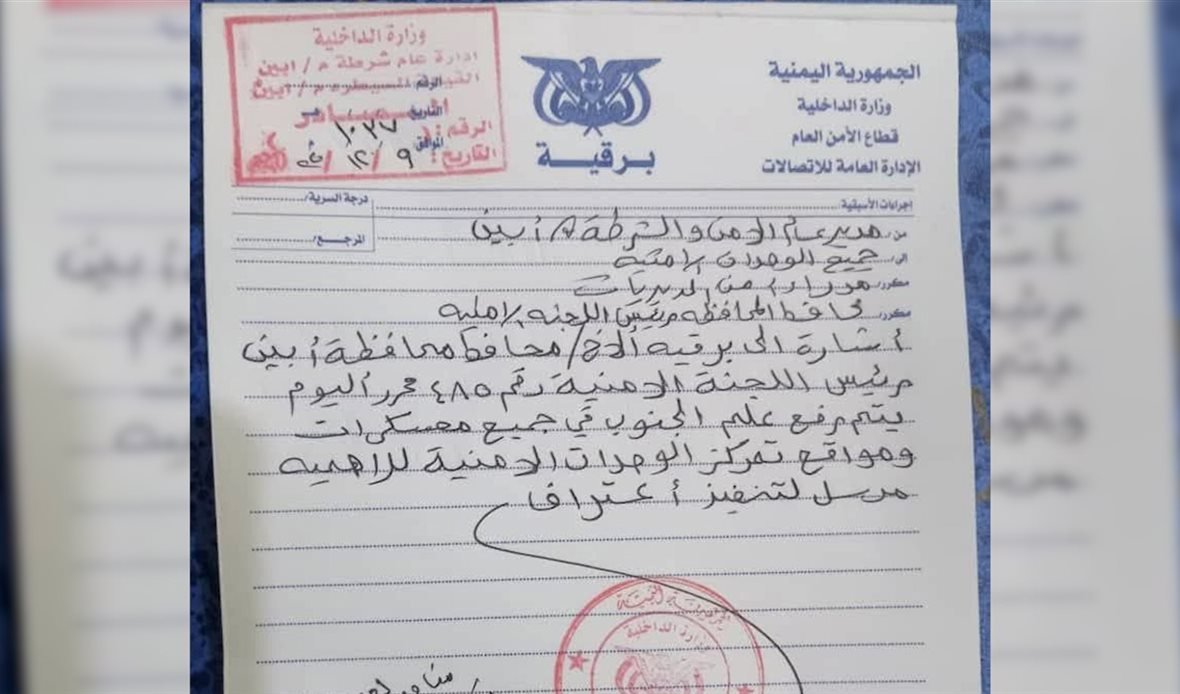 الجمهورية اليمنية
وزارة الداخلية
قطاع الأمن العام
الإدارة العامة للاتصالات
برقية
وزارة الداخلية
ادارة عام شرطة م/ ابين
الرقم
التاريخ
الموافق
الرقم:
التاريخ: ٩/١٢/
اجراءات الأسبقية
درجة السرية/
المرجع/
من مدير عام الامن والشرطة م/ أبين
الى جميع الوحدات الامنية
مكرر مدراء أمن المديريات
مكرر محافظ المحافظه رئيس اللجنه الامنيه
أشارة الى برقيه الأخ/ محافظ محافظة أبين
رئيس اللجنة الامنية رقم ٤٨٥ محرر أليوم
يتم رفع علم الجنوب في جميع معسكرات
ومواقع تمركز الوحدات الامنية للاهميه
مرسل لتنفيذ أعتراف
الجمهورية اليمنية
وزارة الداخلية